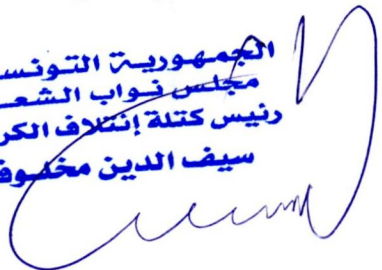 الجمهورية التونسـ
مجلس نواب الشعـ
رئيس كتلة إئتلاف الكر
سيف الدين مخلوف